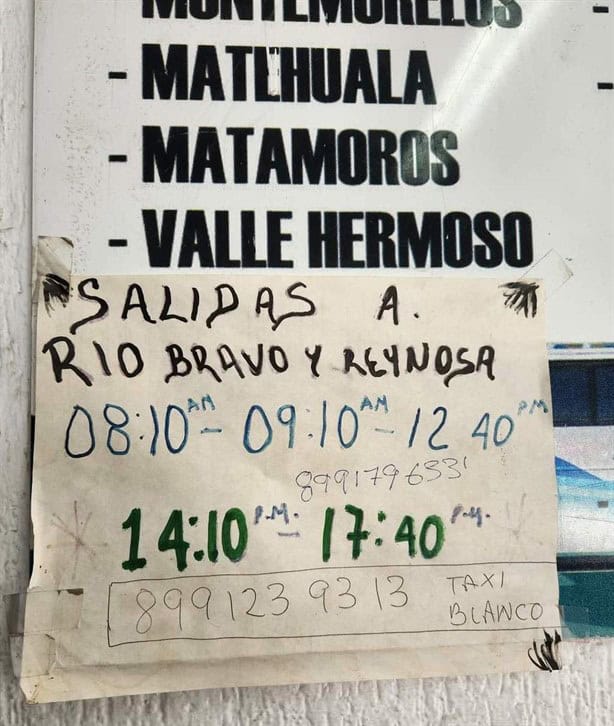 MONTEMORELOS
- MATEHUALA
- MATAMOROS
- VALLE HERMOSO
SALIDAS A.
RIO BRAVO Y REYNOSA
08:10 AM - 09:10 AM - 12 40 PM
8991796331
14:10 P.M. - 17:40 P.M.
899123 9313 TAXI
BLANCO